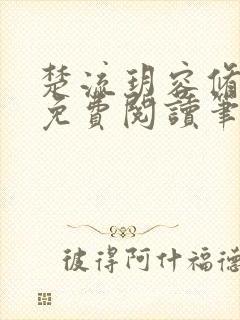 楚流玥容脩
免費閱讀筆
彼得阿什福德